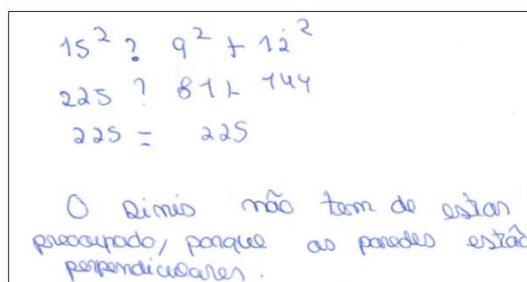 15² ? 9² + 12²
225 ? 81 + 144
225 = 225
O Dinis não tem de estar
preocupado, porque as paredes estão
perpendiculares.